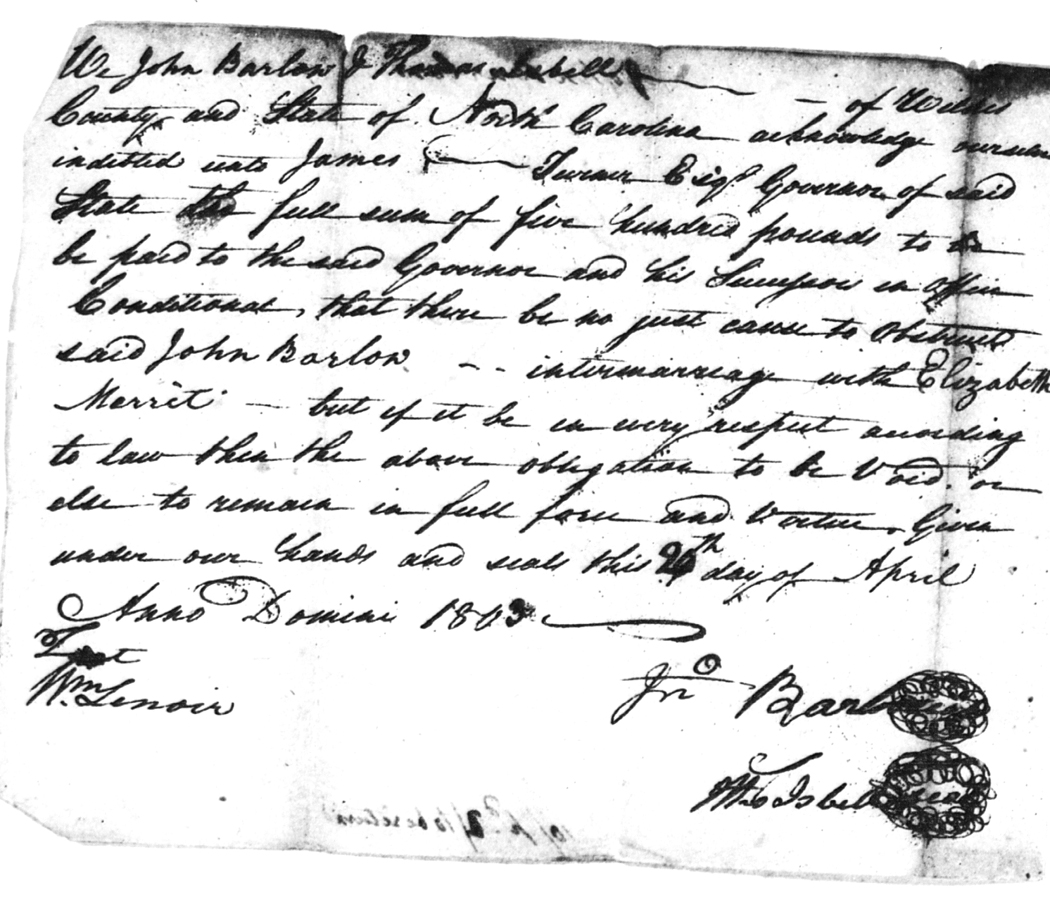 We John Barlow & Thomas Isbell of Wilkes
County and State of North Carolina acknowledge
inditted unto James Turner Esqr. Governor of said
State the full sum of five hundred pounds to
be paid to the said Governor and his Successors in office
Conditional, that there be no just cause to Obstruct
said John Barlow - - intermarriage with Elizabeth
Merrit - but if it be in every respect according
to law then the above obligation to be Void. or
else to remain in full force and Vertue. Given
under our hands and seals this 26th day of April
Anno Domini 1803
Test
Wm. Lenoir
Jno Barlow seal
Tho Isbell seal